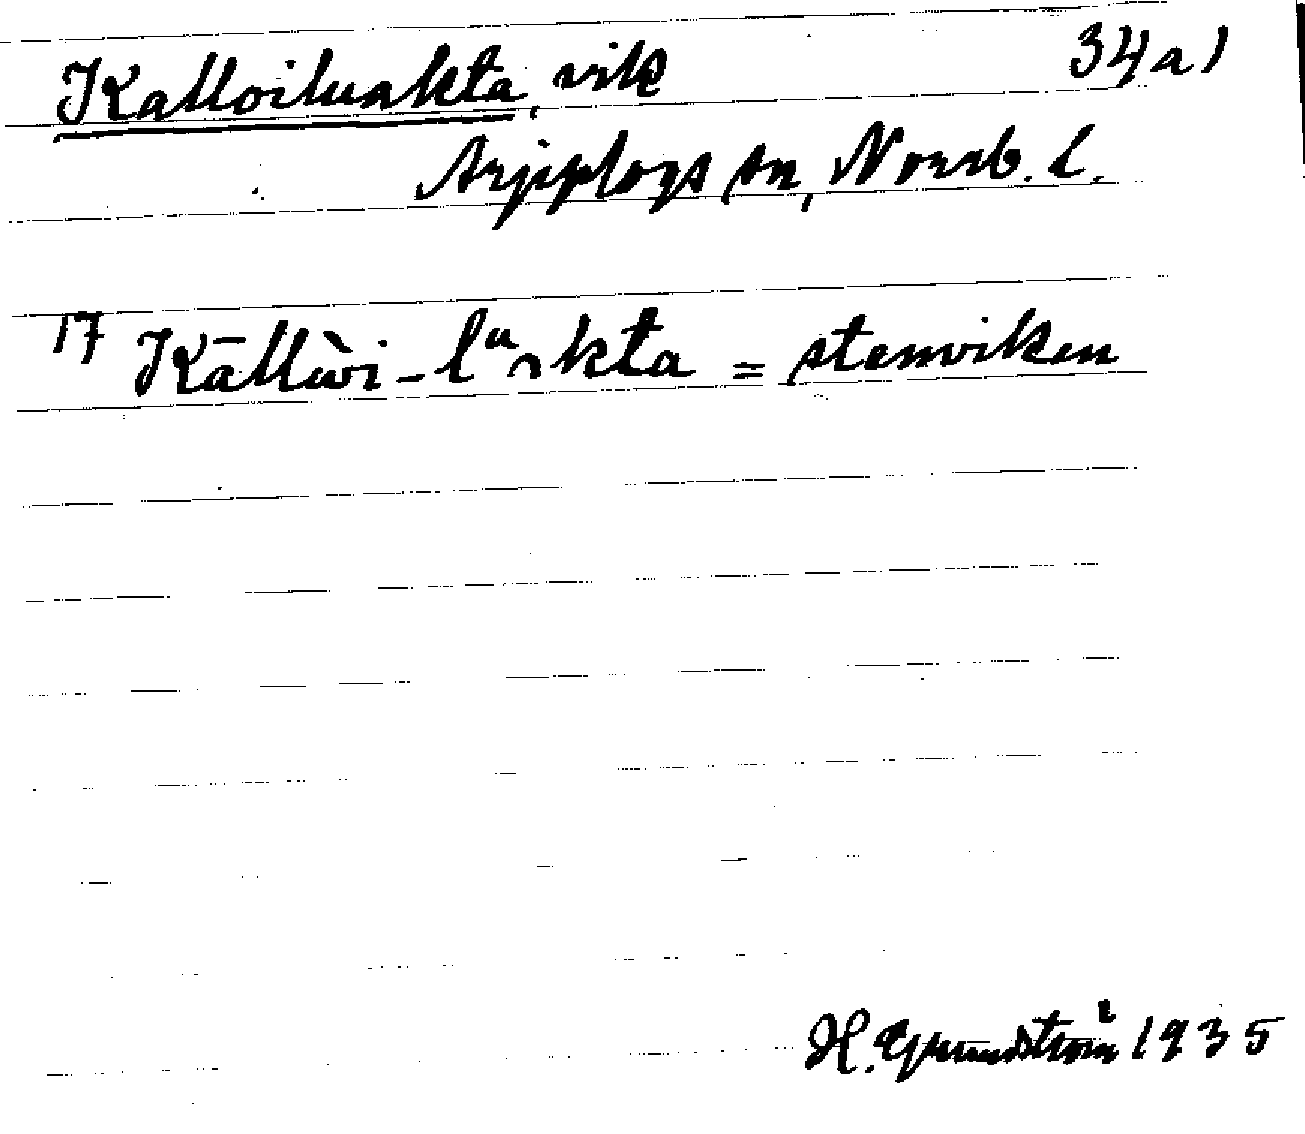 Kalloiluakta, vik 34 a 1
Arjeplogs sn, Norrb. l.
17 Kāllὼi-lᵘ̯akta = stenviken
H. Grundström 1935